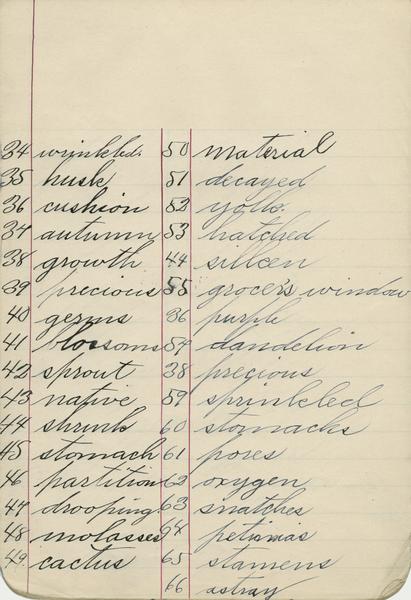 34 wrinkled.
35 husk
36 cushion
37 autumn
38 growth
39 precious
40 germs
41 blossoms
42 sprout
43 native
44 shrink
45 stomach
46 partition
47 drooping
48 molasses
49. cactus
50 material
51 decayed
52 yolk.
53 hatched
44 silken
55 grocer's window
56 purple
57 dandelion
58 precious
59 sprinkled
60 stomachs
61 pores
62 oxygen
63 snatches
64 petunias
65 stamens
66 astray